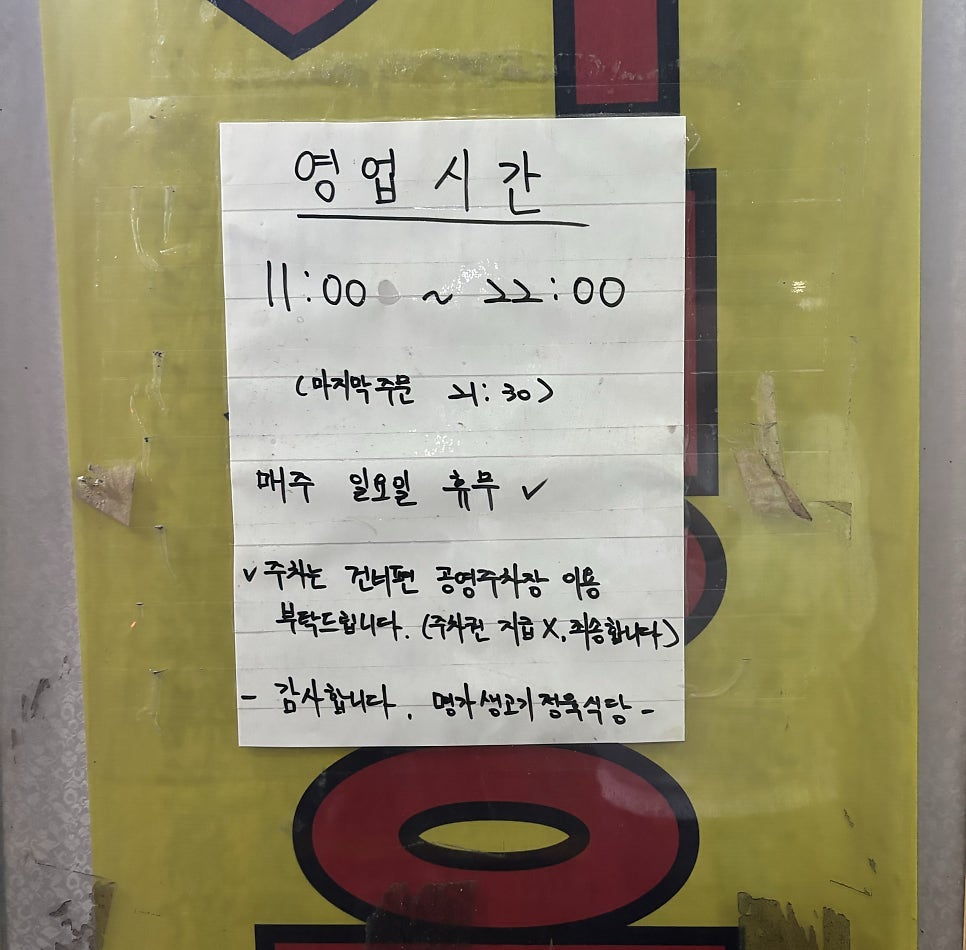 영업시간
11:00 ~ 22:00
(마지막주문 21:30)
매주 일요일 휴무 ✓
✓주차는 건너편 공영주차장 이용
부탁드립니다. (주차권 지급 X, 죄송합니다)
- 감사합니다. 명가생고기정육식당 -